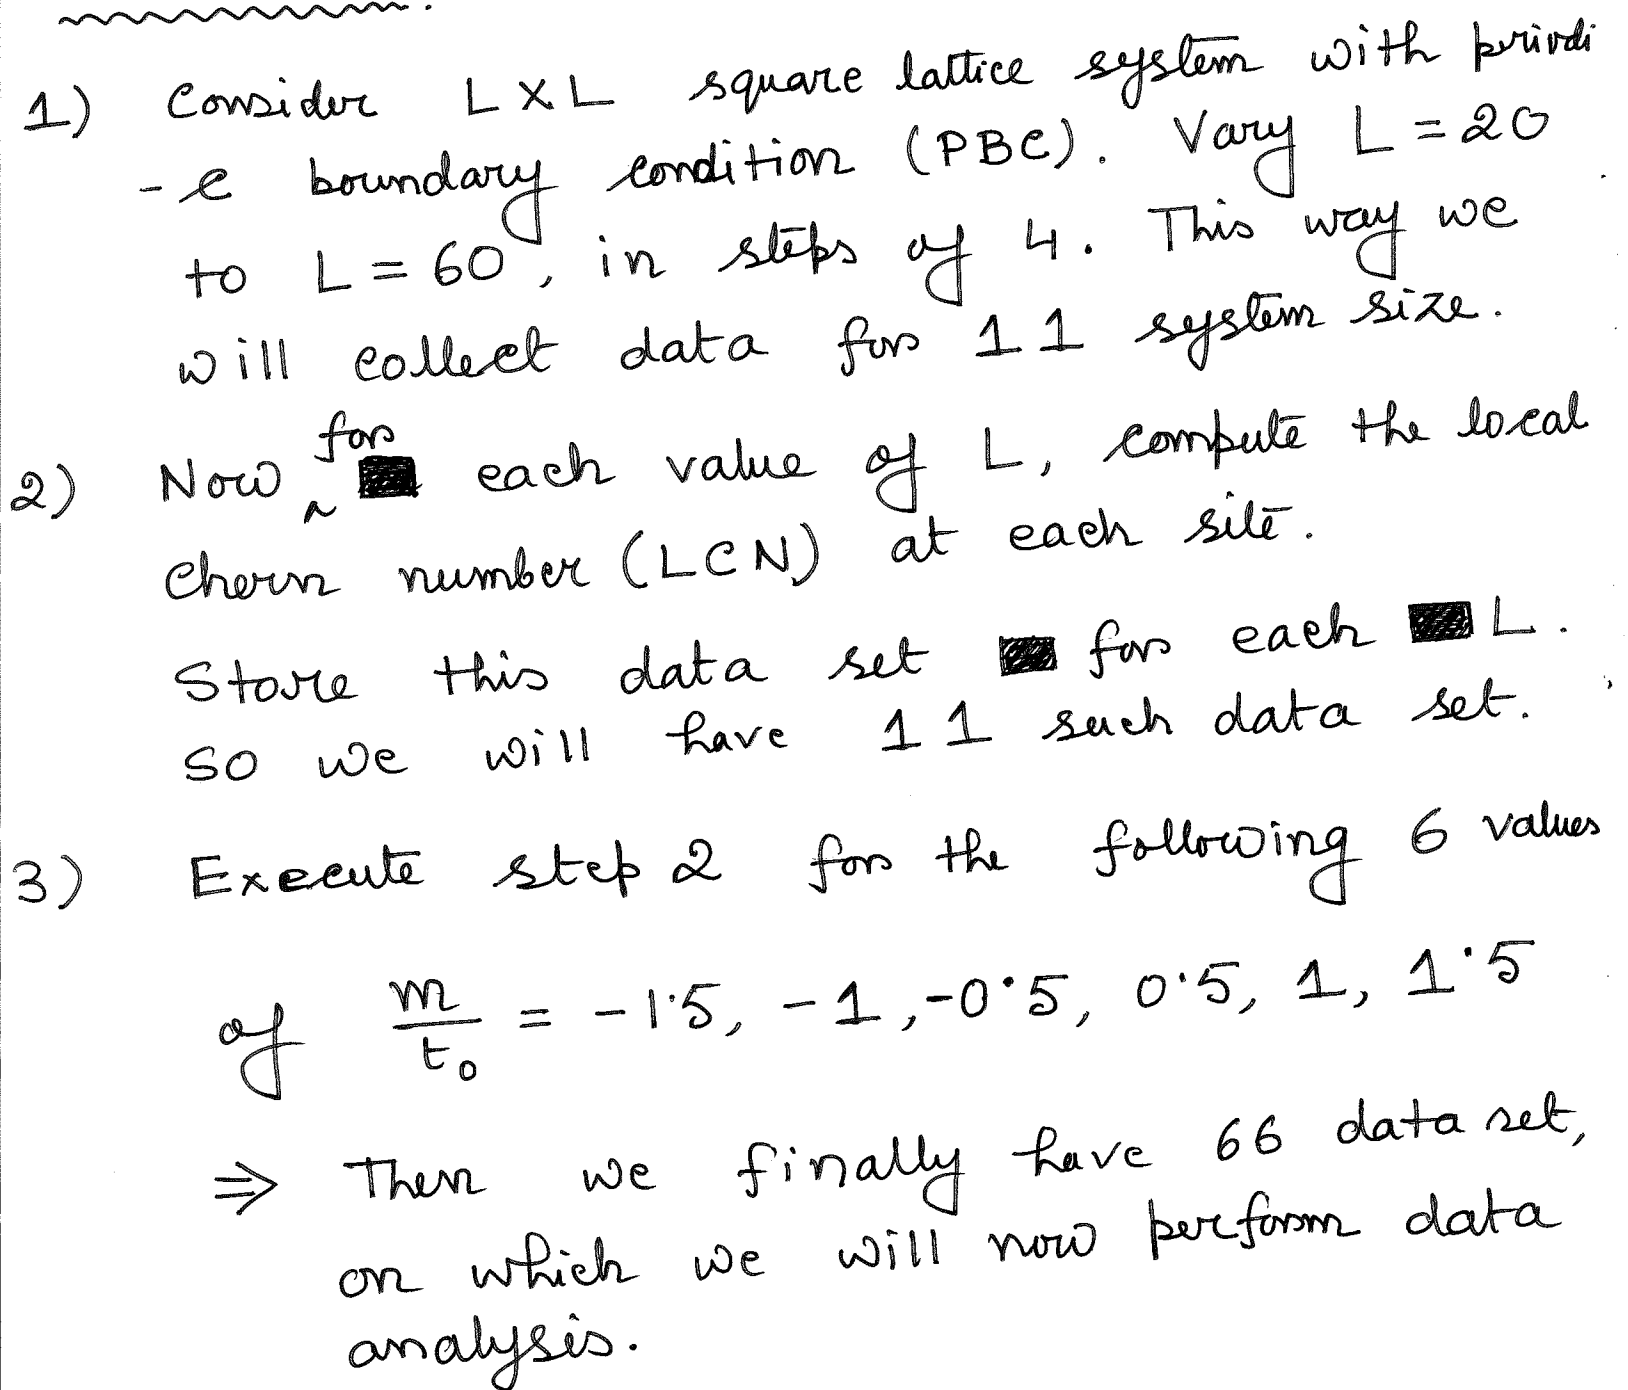 1) Consider L X L square lattice system with priodi
-c boundary condition (PBC). Vary L = 20
to L = 60, in steps of 4. This way we
will collect data for 11 system size.
2) Now for each value of L, compute the local
Chern number (LCN) at each site.
Store this data set for each L.
So we will have 11 such data set.
3) Execute step 2 for the following 6 values
of m/t₀ = -1.5, -1, -0.5, 0.5, 1, 1.5
⇒ Then we finally have 66 data set,
on which we will now perform data
analysis.